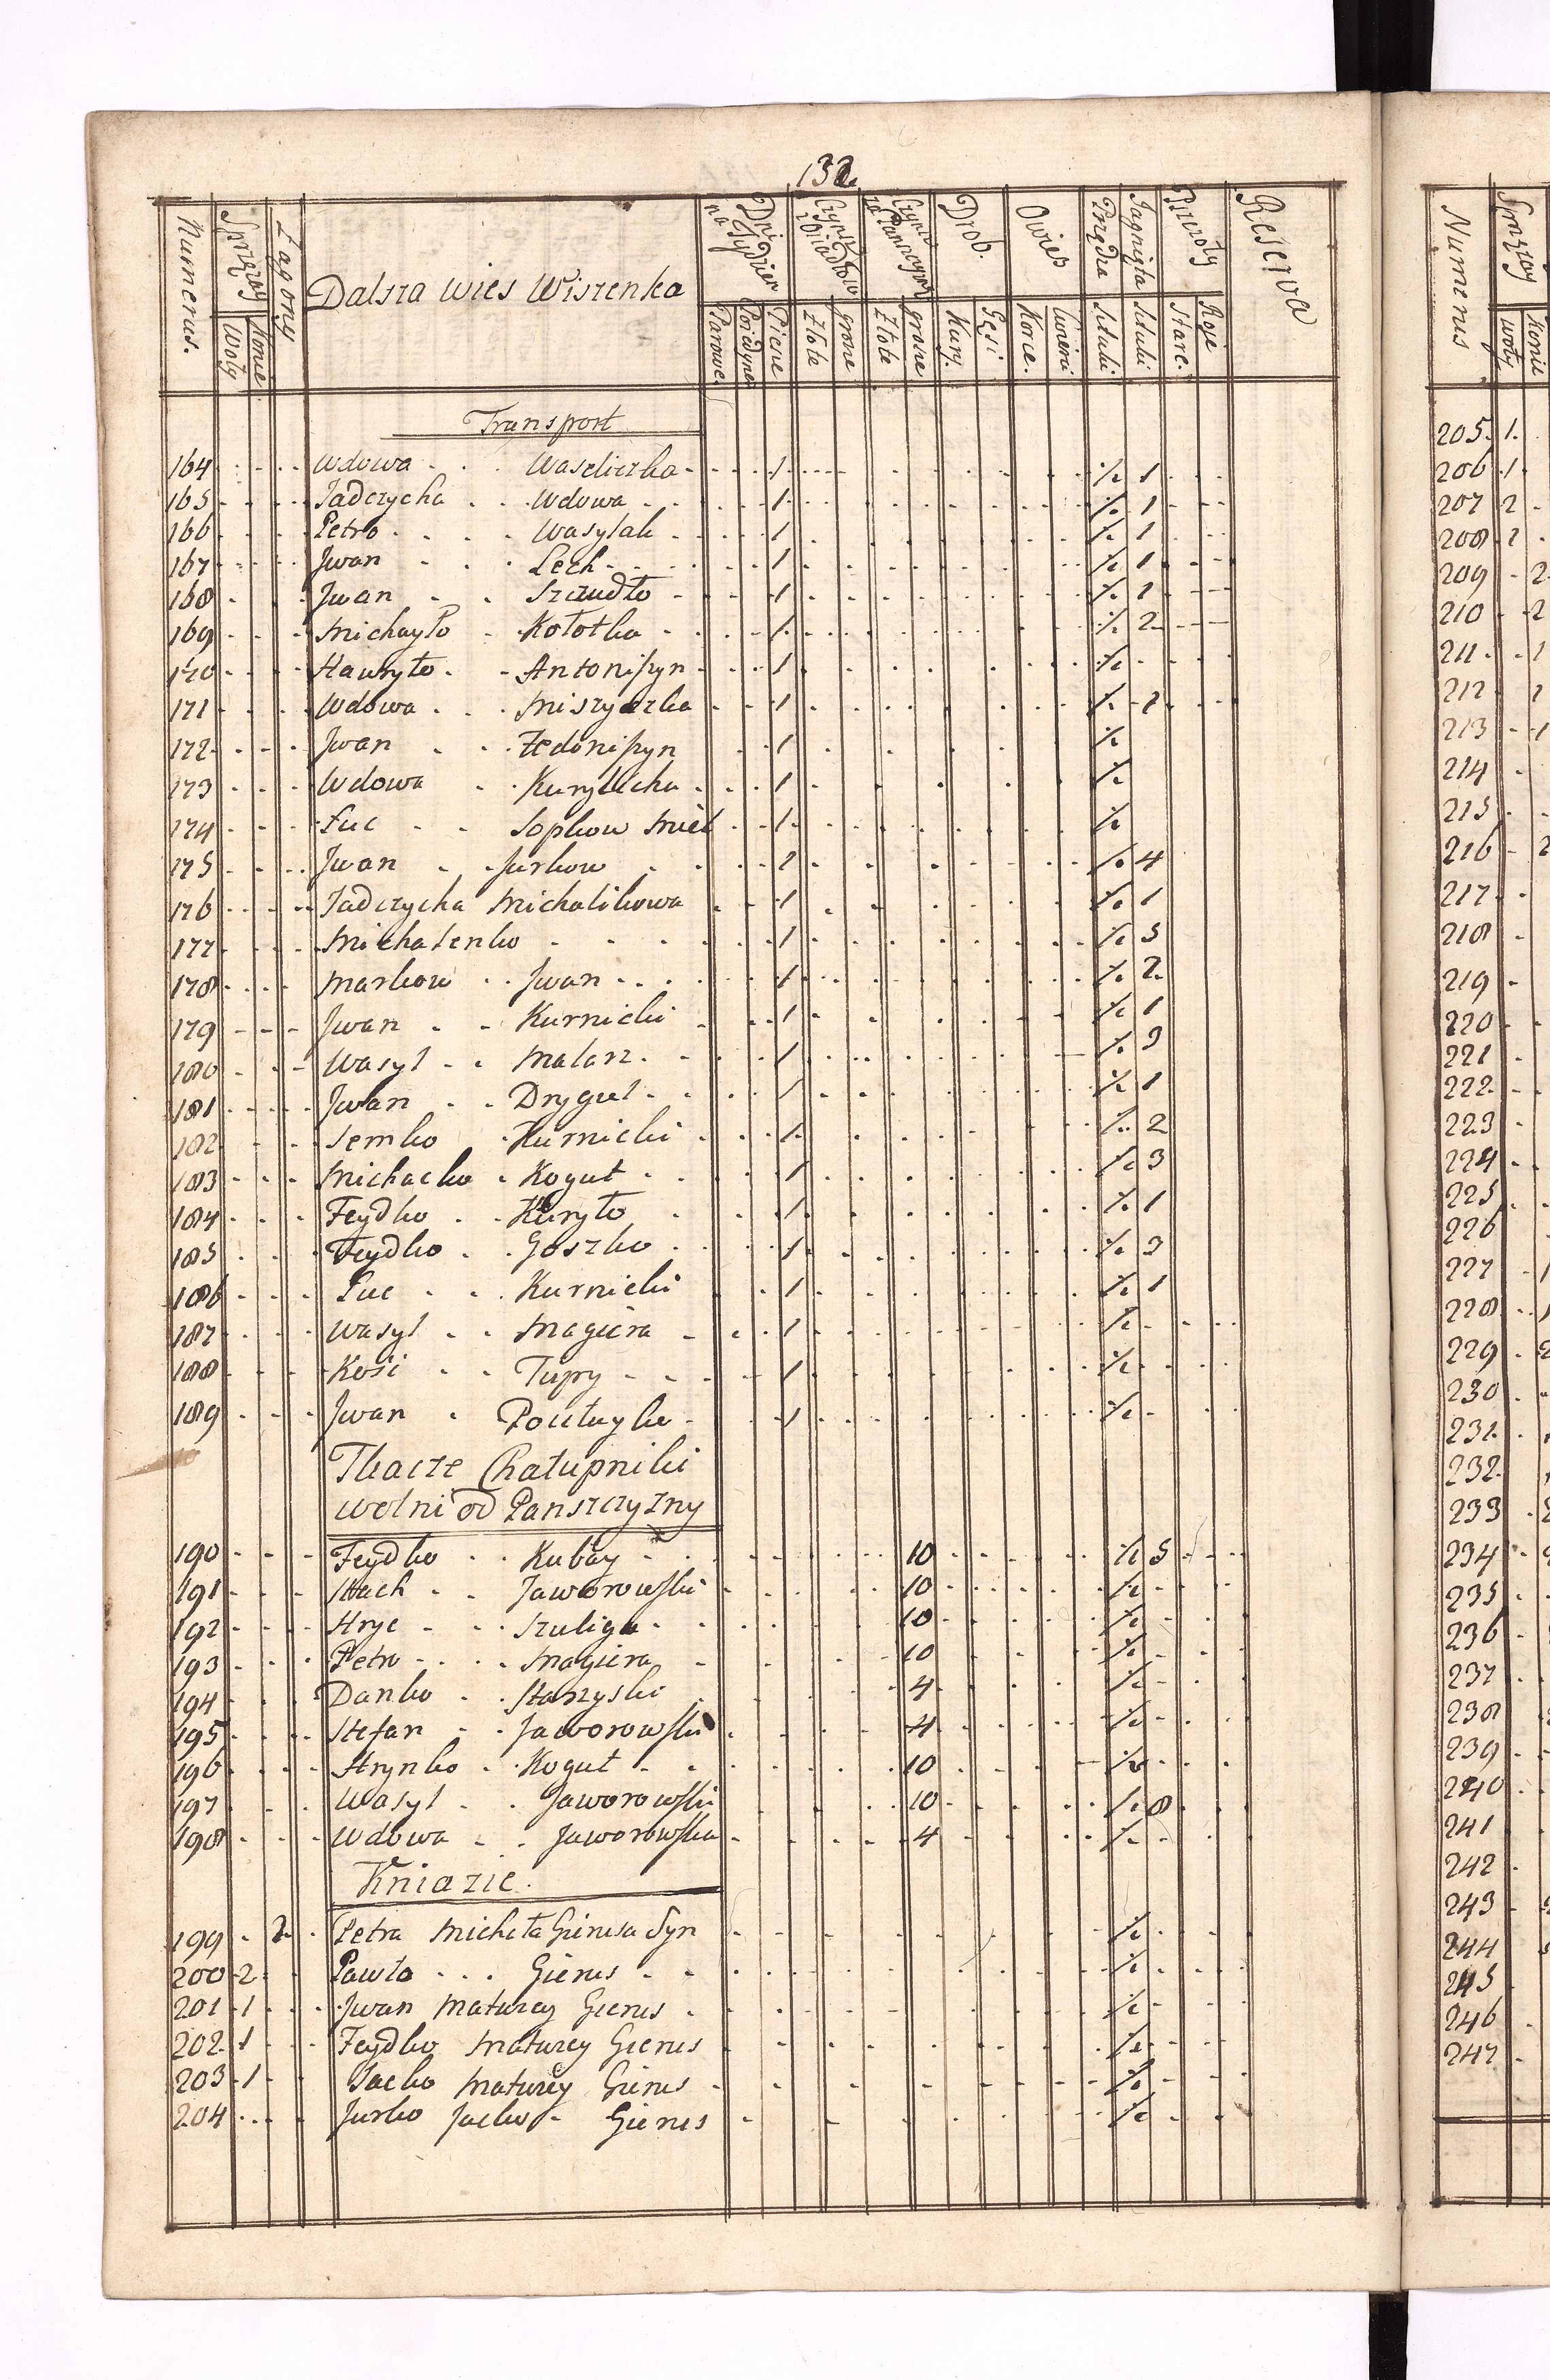 132
Numerus.
Sprzężay
Woły
Konie
Zagony
Dalsza Wies Wiszenka
Dni na Tydzien
Parowe
Poiedyne
Piesze
Czynsz
złote
grosze
Czynsz
złote
grosze
Drob.
Kury.
Gęsi
Owies
Korce.
Przędza
sztuki.
Jagnięta
sztuki
Pszczoły
Stare.
Roje
Reserva
Transport
164 Wdowa Waseliczka 1 ./. 1
165 Sadczycha Wdowa 1 ./. 1
166 Petro Wasylak 1 ./. 1
167 Jwan Lech 1 ./. 1
168 Jwan Szczudło 1 ./. 1
169 Michayło Kołotka 1 ./. 2
170 Hawryło Antoniszyn 1 ./.
171 Wdowa Miszyczka 1 ./. 1
172 Jwan Fedoniszyn 1 ./.
173 Wdowa Kurylicha 1 ./.
174 Łuc Sopkow 1 ./.
175 Jwan Jurkow 1 ./. 4
176 Sadczycha Michalikowa 1 ./. 1
177 Michalenko 1 ./. 5
178 Markow Jwan 1 ./. 2
179 Jwan Kurnicki 1 ./. 1
180 Wasyl Malarz 1 ./. 3
181 Jwan Drygul 1 ./. 1
182 Semko Kurnicki 1 ./. 2
183 Michacko Kogut 1 ./. 3
184 Feydko Kuryło 1 ./. 1
185 Feydko Goszko 1 ./. 3
186 Łuc Kurnicki 1 ./. 1
187 Wasyl Magiera 1 ./.
188 Kość Tupry 1 ./.
189 Jwan 1 ./.
Tkacze Chałupniki
wolni od Panszczyzny
190 Feydko Kubay 10 ./. 5
191 Stach Jaworowski 10 ./.
192 Hryc Szuliga 10 ./.
193 Petro Magiera 10 ./.
194 Danko Starzyski 4 ./.
195 Stefan Jaworowski 4 ./.
196 Hrynko Kogut 10 ./.
197 Wasyl Jaworowski 10 ./. 8
198 Wdowa Jaworowska 4 ./.
Kniazie.
199 2 Petra Michała Gierusa Syn ./.
200 2 Pawło Gierus ./.
201 1 Jwan Matwiey Gierus ./.
202 1 Feydko Matwiey Gierus ./.
203 1 Jacko Matwiey Gierus ./.
204 Jurko Jacko Gierus ./.
Numerus
Sprzężay
Woły
Konie
205. 1.
206 1
207 2
208 2
209 2
210 2
211 1
212
213 1
214
215
216 2
217
218
219
220
221
222
223
224
225
226
227
228
229
230
231
232
233
234
235
236
237
238
239
240
241
242
243
244
245
246
247